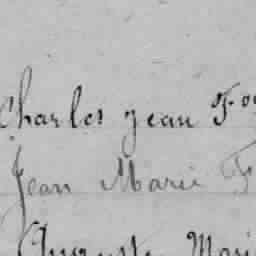 Charles jean
Jean Marie
Auguste Mari